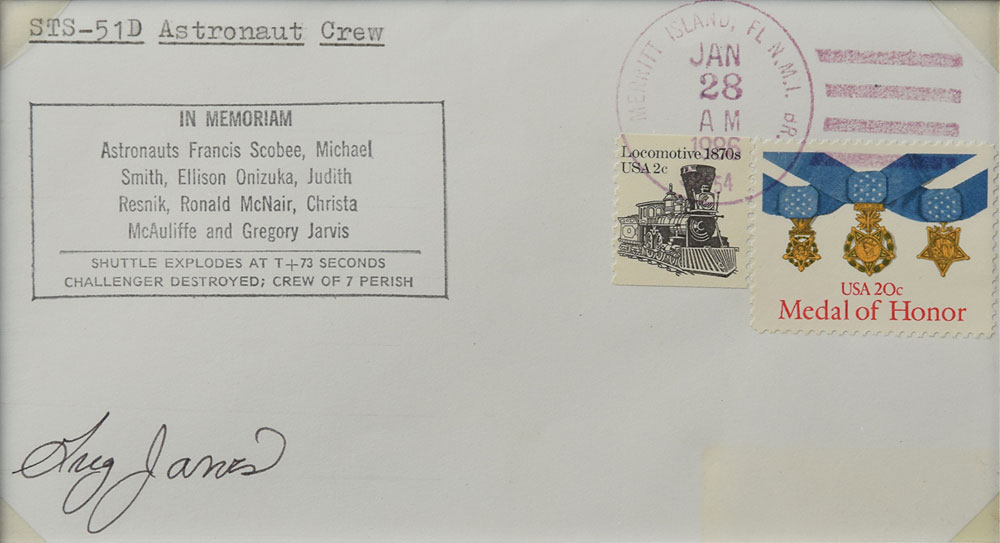 STS-51D Astronaut Crew
IN MEMORIAM
Astronauts Francis Scobee, Michael
Smith, Ellison Onizuka, Judith
Resnik, Ronald McNair, Christa
McAuliffe and Gregory Jarvis
SHUTTLE EXPLODES AT T+73 SECONDS
CHALLENGER DESTROYED; CREW OF 7 PERISH
MERRITT ISLAND, FL N.M.I. BR.
JAN
28
AM
1986
Locomotive 1870s
USA 2c
USA 20c
Medal of Honor
Greg Jarvis